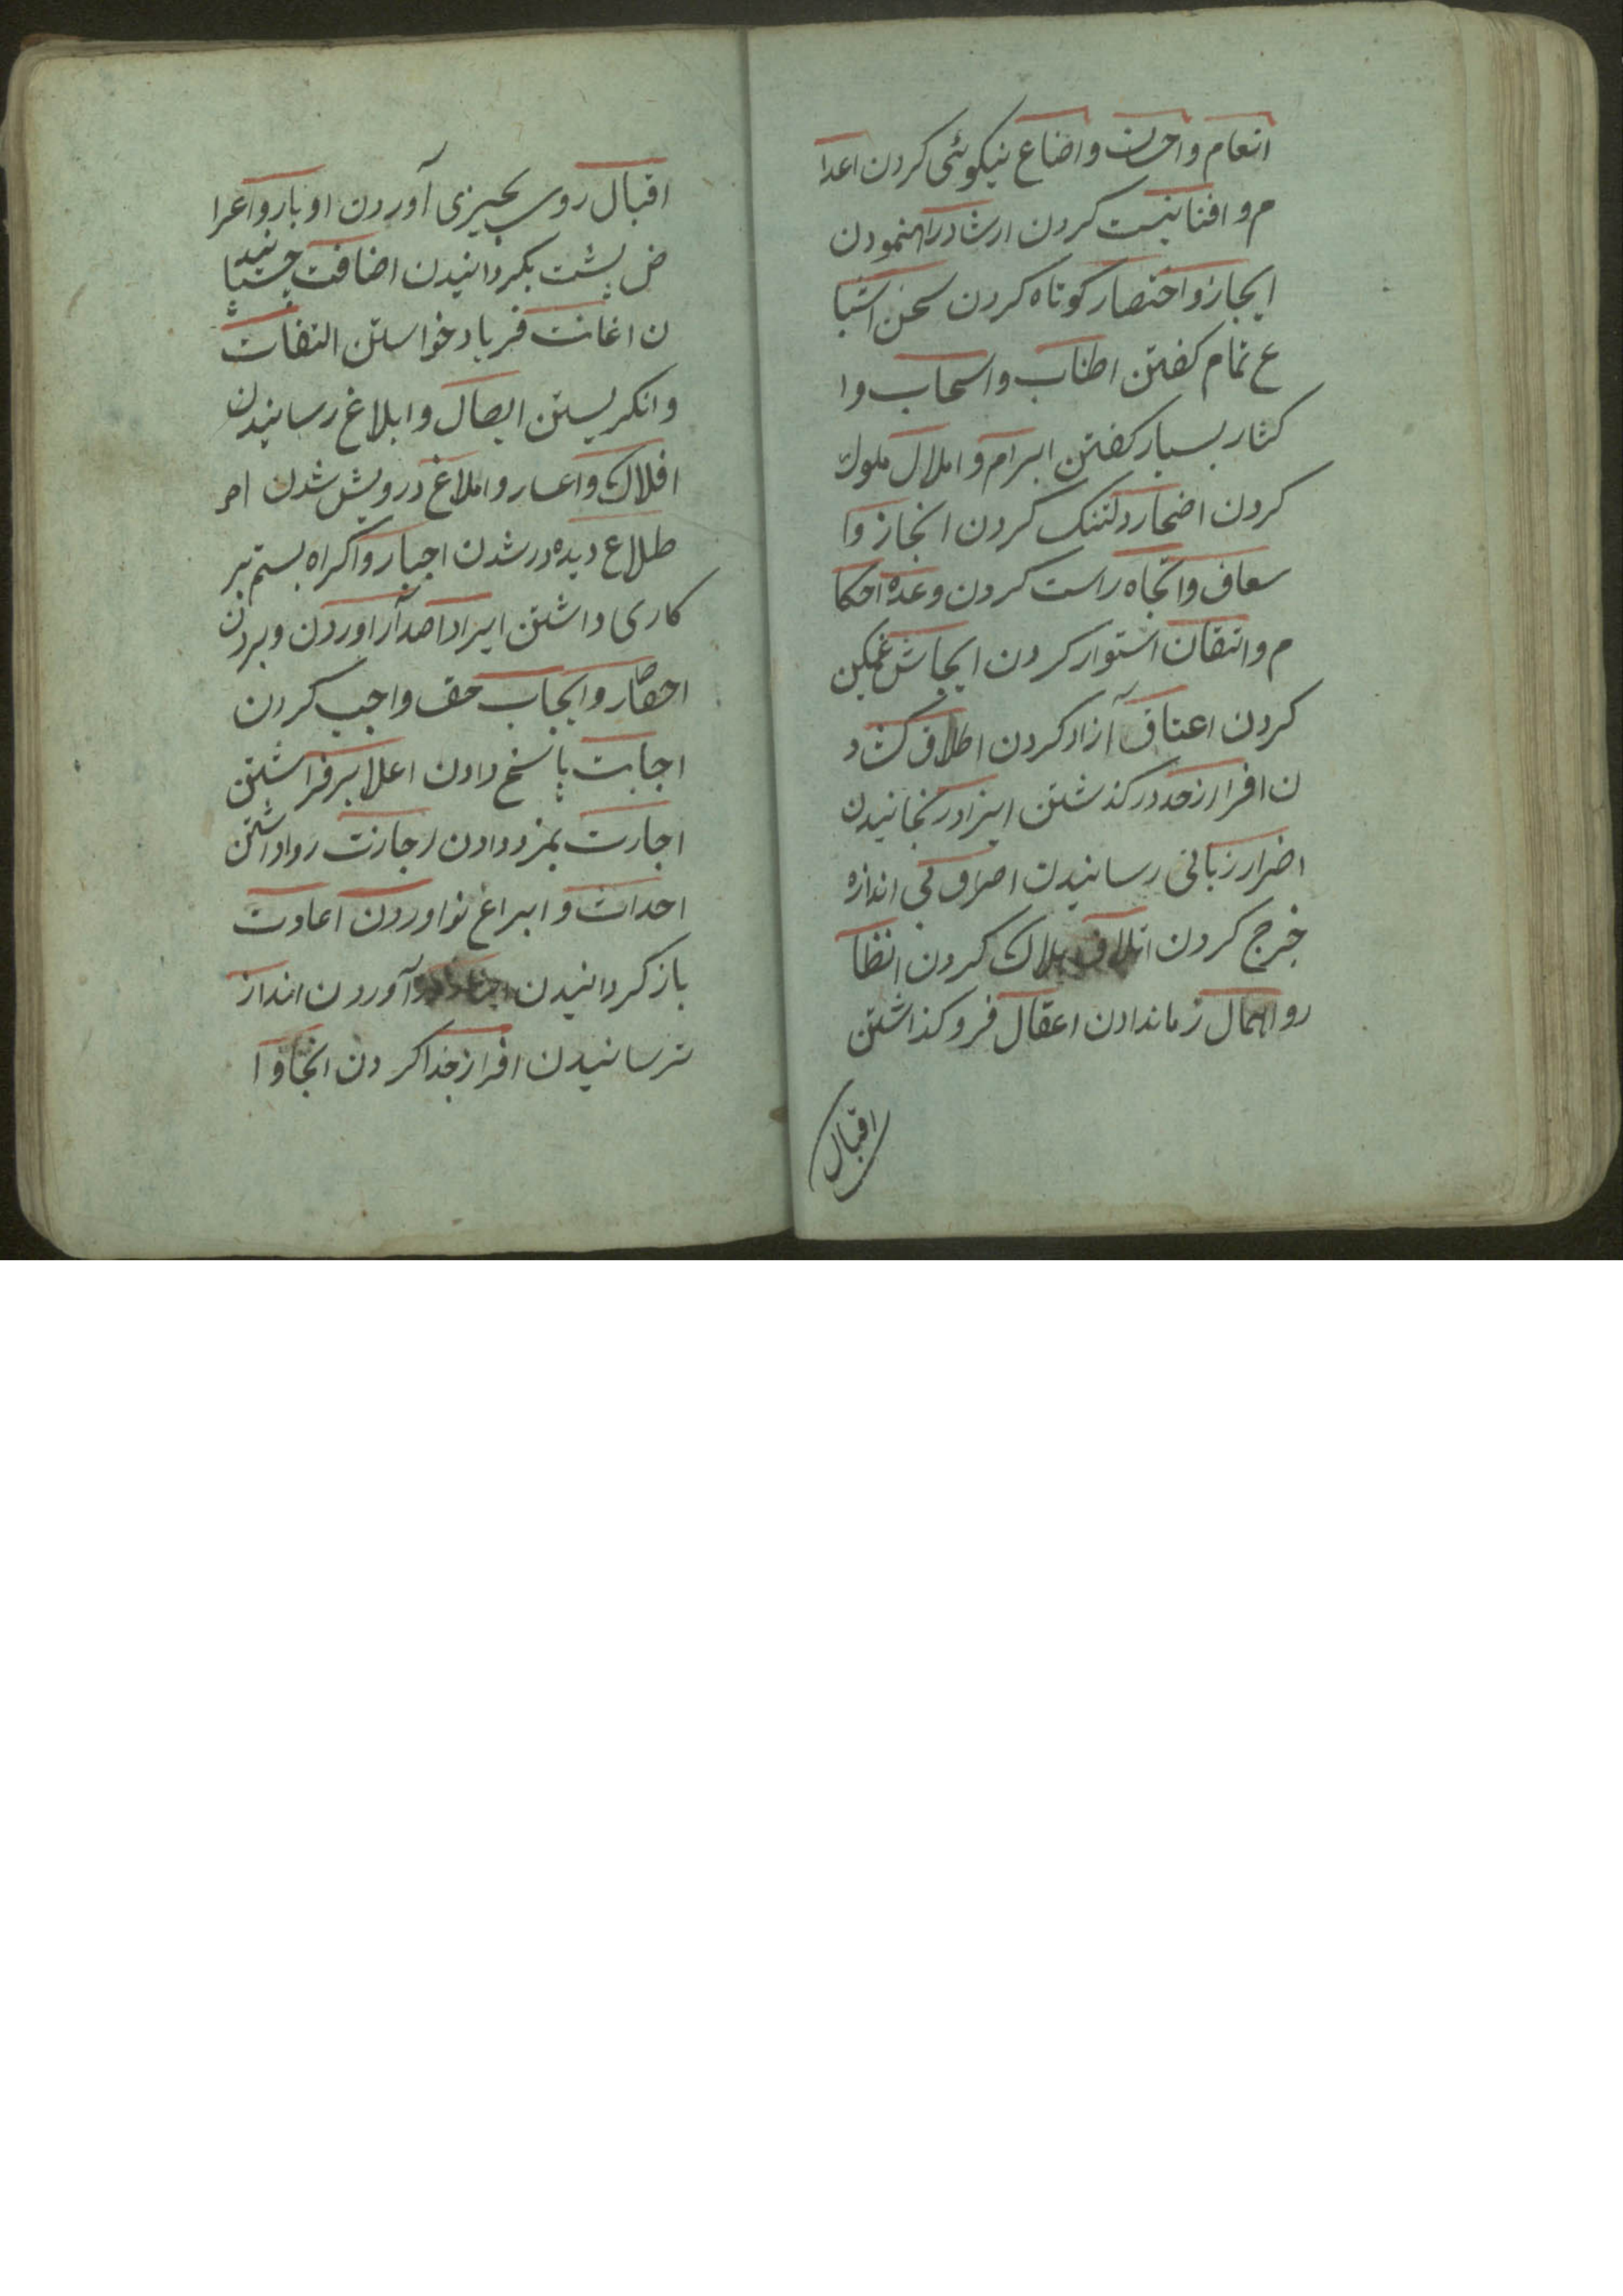 انعام و احسان و اضاع نیکوئی کردن اعدا
م و افنا نیست کردن ارشاد راهنمودن
ایجاز و اختصار کوتاه کردن سخن اشبا
ع تمام کفتن اطناب و اسحاب و ا
کثار بسیار کفتن ابرام و املال ملول
کردن اضجار دلتنک کردن انجاز و ا
سعاف و انجاه راست کردن وعده احکا
م و اتقان استوار کردن ایحاش غمکین
کردن اعتاق آزاد کردن اطلاق کشاد
ن افرا ازحد درکذشتن ایزا درنجانیدن
اضرار زبانی رسانیدن اصراف بی اندازه
خرج کردن اتلاف هلاک کردن انظا
ر و اهمال زماندادن اعقال فروکذاشتن
اقبال
اقبال روی بچیزی آوردن اوبار و اعرا
ض پشت بکردانیدن اضافت چسپانید
ن اغاثت فریاد خواستن التفات
وانکریستن ایصال و ابلاغ رسانیدن
افلاک و اعسار و املاغ درویش شدن ام
طلاع دیده ور شدن اجبار و اکراه بستم بر
کاری داشتن ایراد اصدار آوردن و بردن
احصار و ایجاب حق واجب کردن
اجابت پاسخ دادن اعلا برفراشتن
اجارت بمزد دادن اجازت روا داشتن
احداث و ابداع نو اوردن اعادت
باز کردانیدن آوردن انداز
ترسانیدن افراز جدا کردن انجا و ا